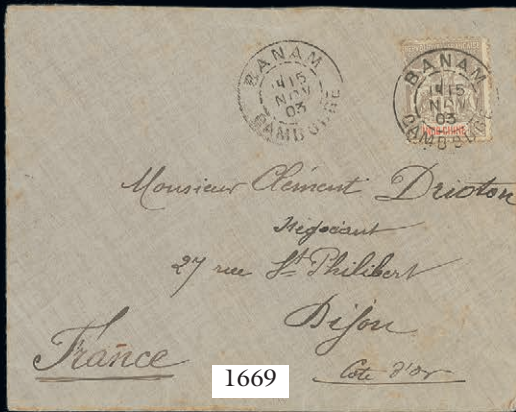 BANAM
15
NOV
03
CAMBODGE
BANAM
15
NOV
03
CAMBODGE
INDO-CHINE
Monsieur Clément Drioton
Négociant
27 rue St Philibert
Dijon
France
Côte d'Or
1669